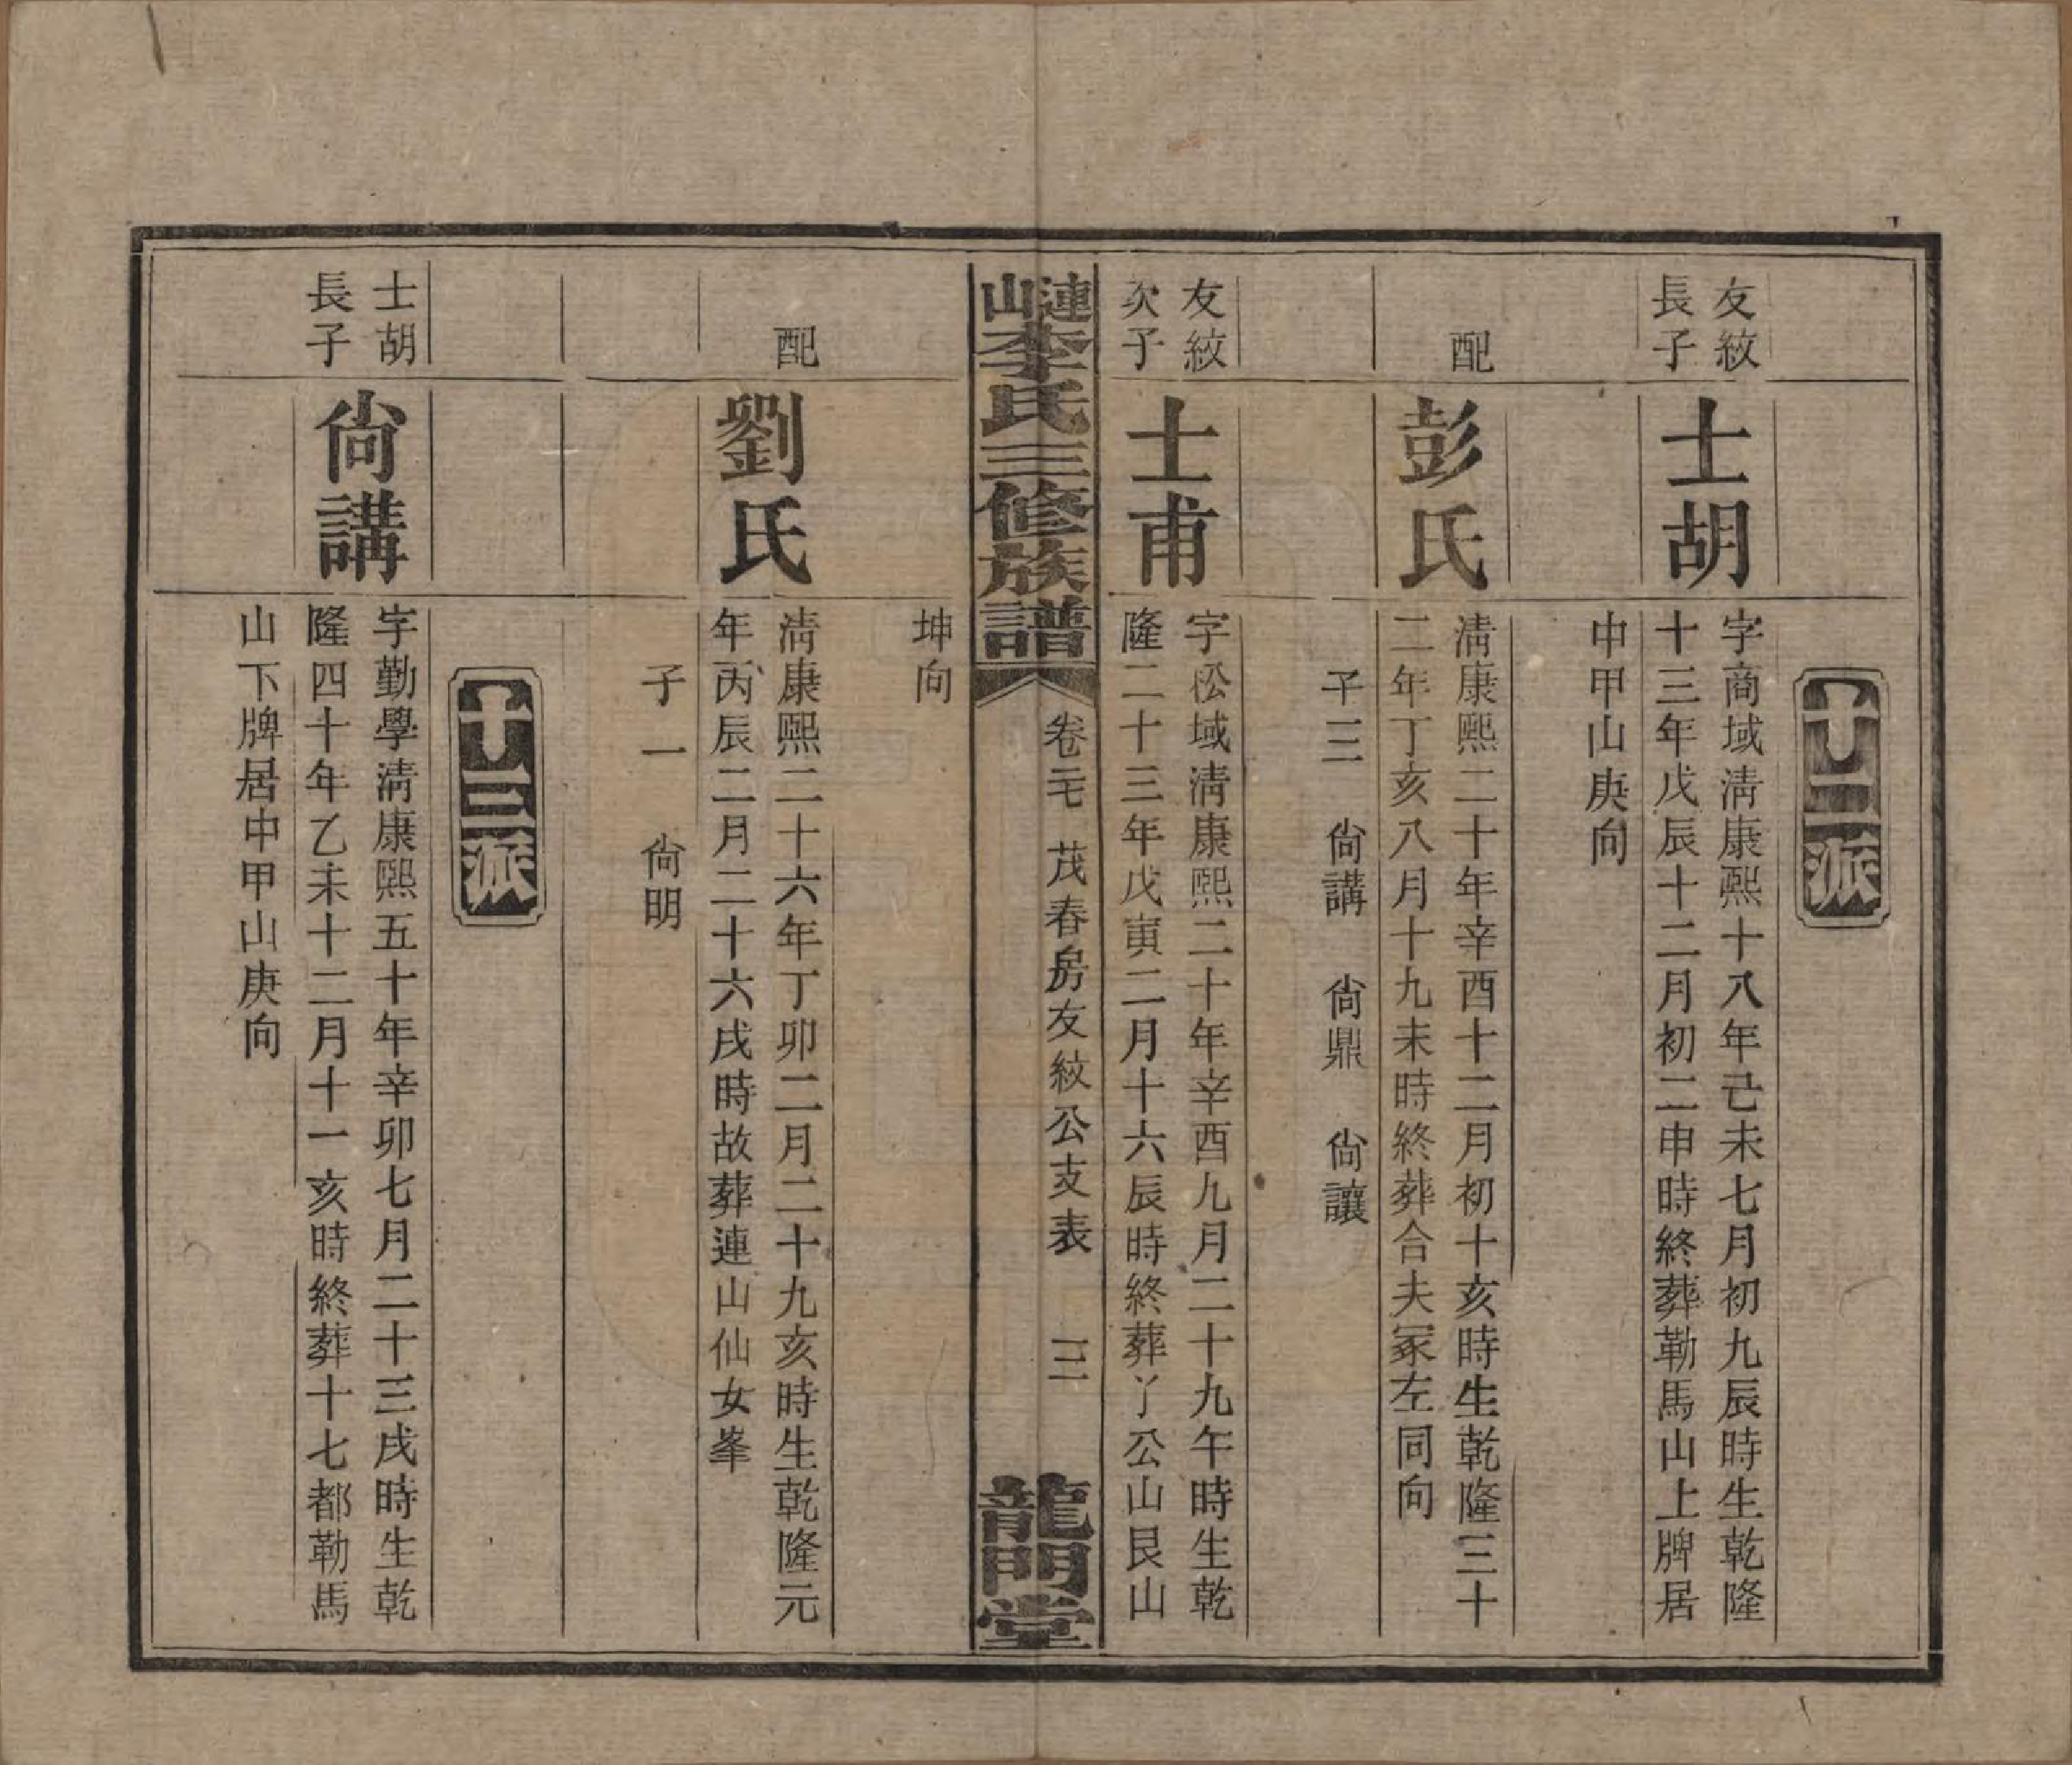 十二派
友紋
長子
士胡
字商域淸康熙十八年己未七月初九辰時生乾隆
十三年戊辰十二月初二申時終葬勒馬山上牌居
中甲山庚向
配
彭氏
淸康熙二十年辛酉十二月初十亥時生乾隆三十
二年丁亥八月十九未時終葬合夫冢左同向
子三　尙講　尙鼎　尙讓
友紋
次子
士甫
字松域淸康熙二十年辛酉九月二十九午時生乾
隆二十三年戊寅二月十六辰時終葬丫公山艮山
連山李氏三修族譜
卷二　茂春房友紋公支表　三
龍門堂
坤向
配
劉氏
淸康熙二十六年丁卯二月二十九亥時生乾隆元
年丙辰二月二十六戌時故葬連山仙女峯
子一　尙明
十三派
士胡
長子
尙講
字勤學淸康熙五十年辛卯七月二十三戌時生乾
隆四十年乙未十二月十一亥時終葬十七都勒馬
山下牌居中甲山庚向